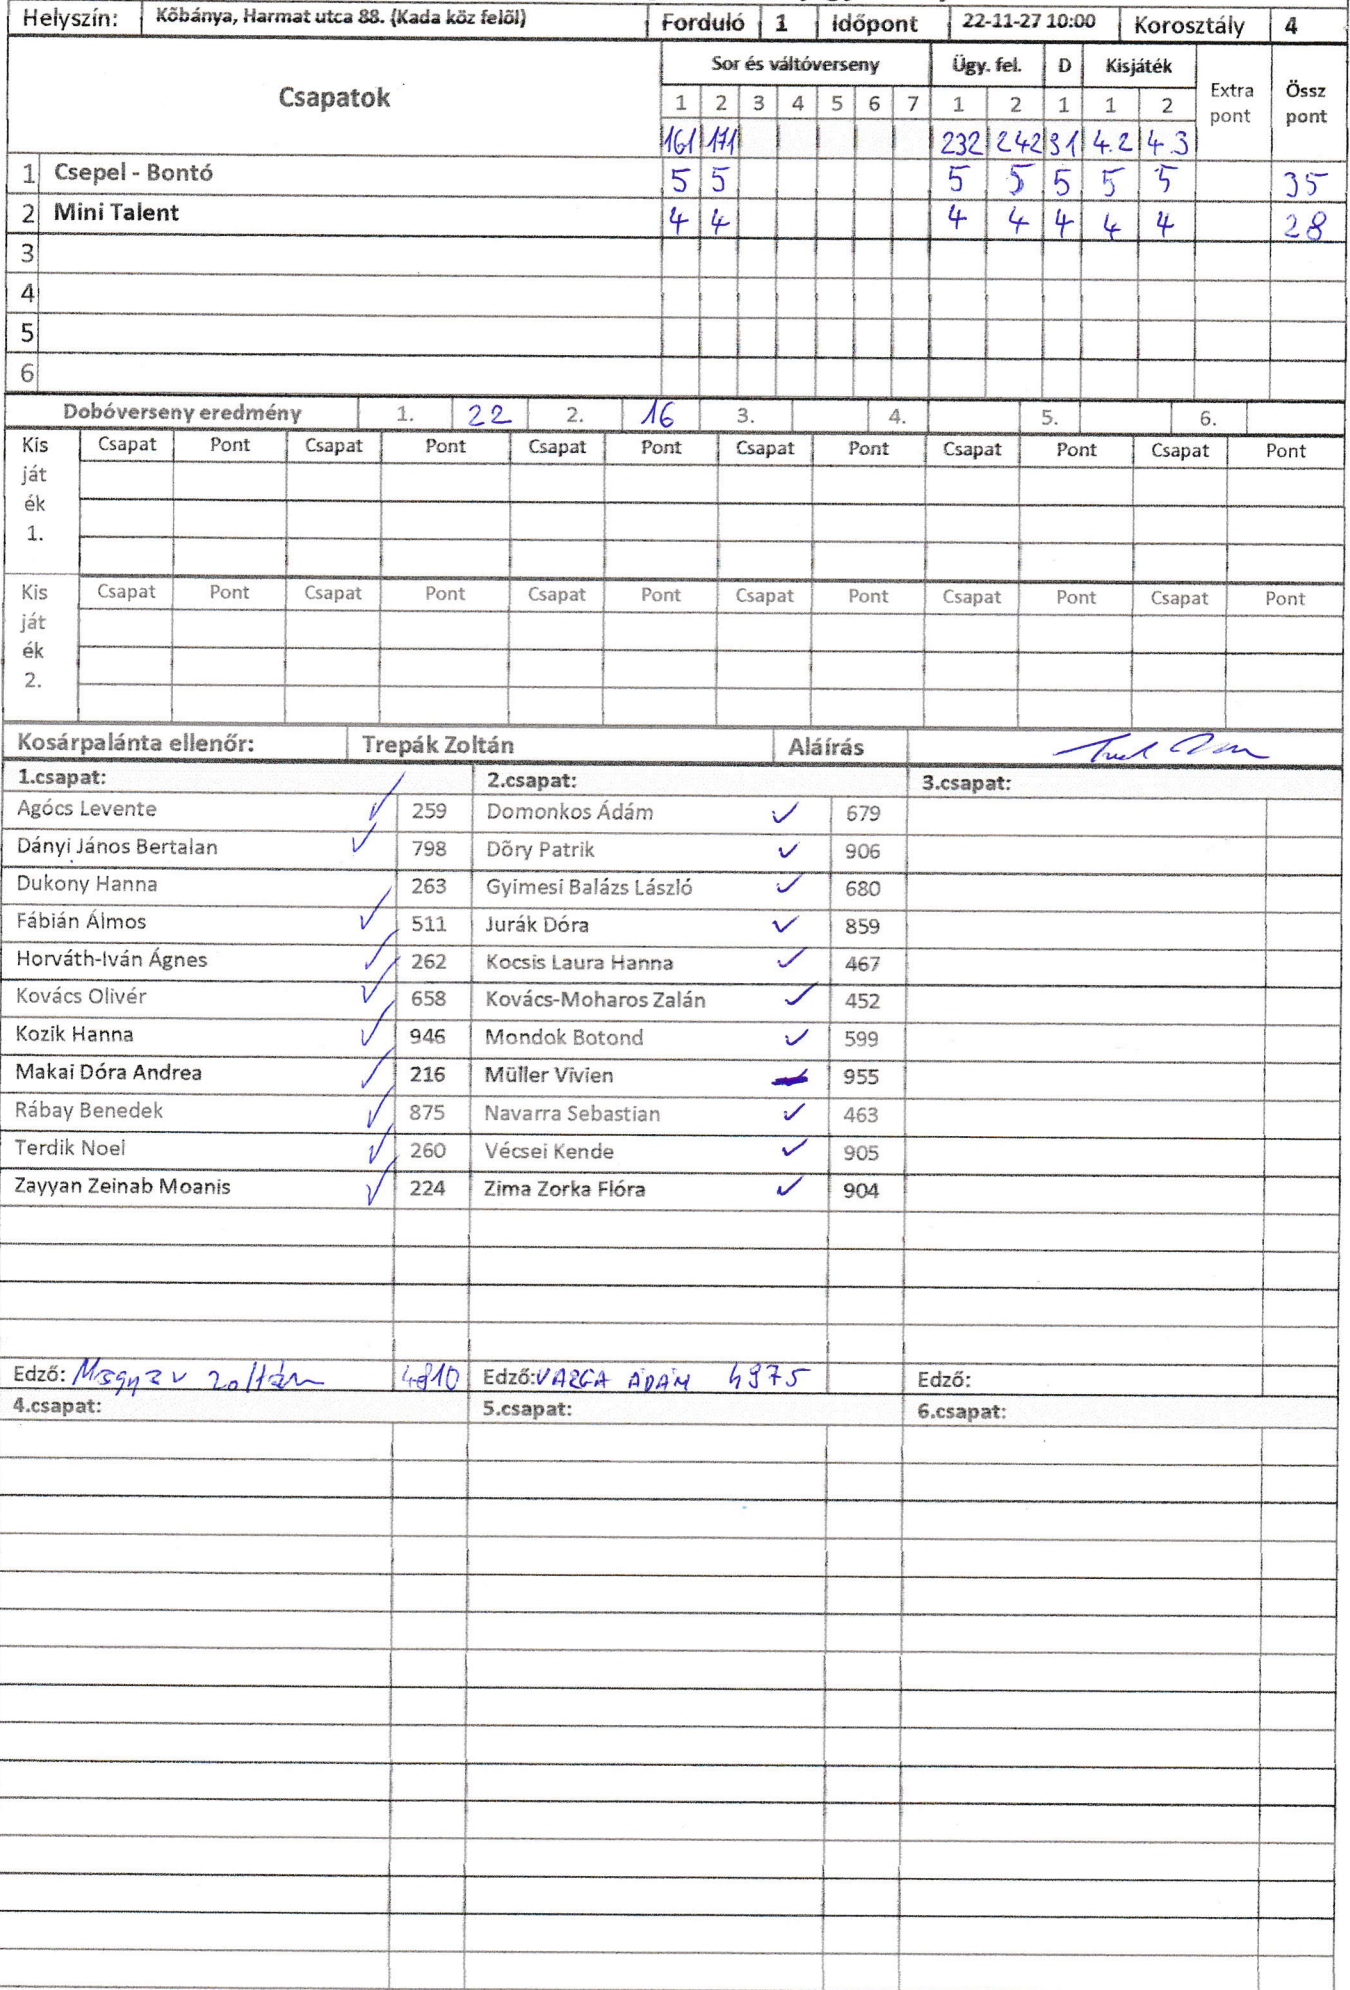 Helyszín: Kőbánya, Harmat utca 88. (Kada köz felől) Forduló 1 Időpont 22-11-27 10:00 Korosztály 4
Csapatok Sor és váltóverseny Ügy. fel. D Kisjáték Extra pont Össz pont
1 2 3 4 5 6 7 1 2 1 1 2
161 171 232 242 31 4.2 4.3
1 Csepel - Bontó 5 5 5 5 5 5 5 35
2 Mini Talent 4 4 4 4 4 4 4 28
3
4
5
6
Dobóverseny eredmény 1. 22 2. 16 3. 4. 5. 6.
Kis ját ék 1. Csapat Pont Csapat Pont Csapat Pont Csapat Pont Csapat Pont Csapat Pont
Kis ját ék 2. Csapat Pont Csapat Pont Csapat Pont Csapat Pont Csapat Pont Csapat Pont
Kosárpalánta ellenőr: Trepák Zoltán Aláírás
1.csapat: 2.csapat: 3.csapat:
Agócs Levente 259 Domonkos Ádám 679
Dányi János Bertalan 798 Dőry Patrik 906
Dukony Hanna 263 Gyimesi Balázs László 680
Fábián Álmos 511 Jurák Dóra 859
Horváth-Iván Ágnes 262 Kocsis Laura Hanna 467
Kovács Olivér 658 Kovács-Moharos Zalán 452
Kozik Hanna 946 Mondok Botond 599
Makai Dóra Andrea 216 Müller Vivien 955
Rábay Benedek 875 Navarra Sebastian 463
Terdik Noel 260 Vécsei Kende 905
Zayyan Zeinab Moanis 224 Zima Zorka Flóra 904
Edző: Magyar Zoltán 4810 Edző: VARGA ÁDÁM 4975 Edző:
4.csapat: 5.csapat: 6.csapat: